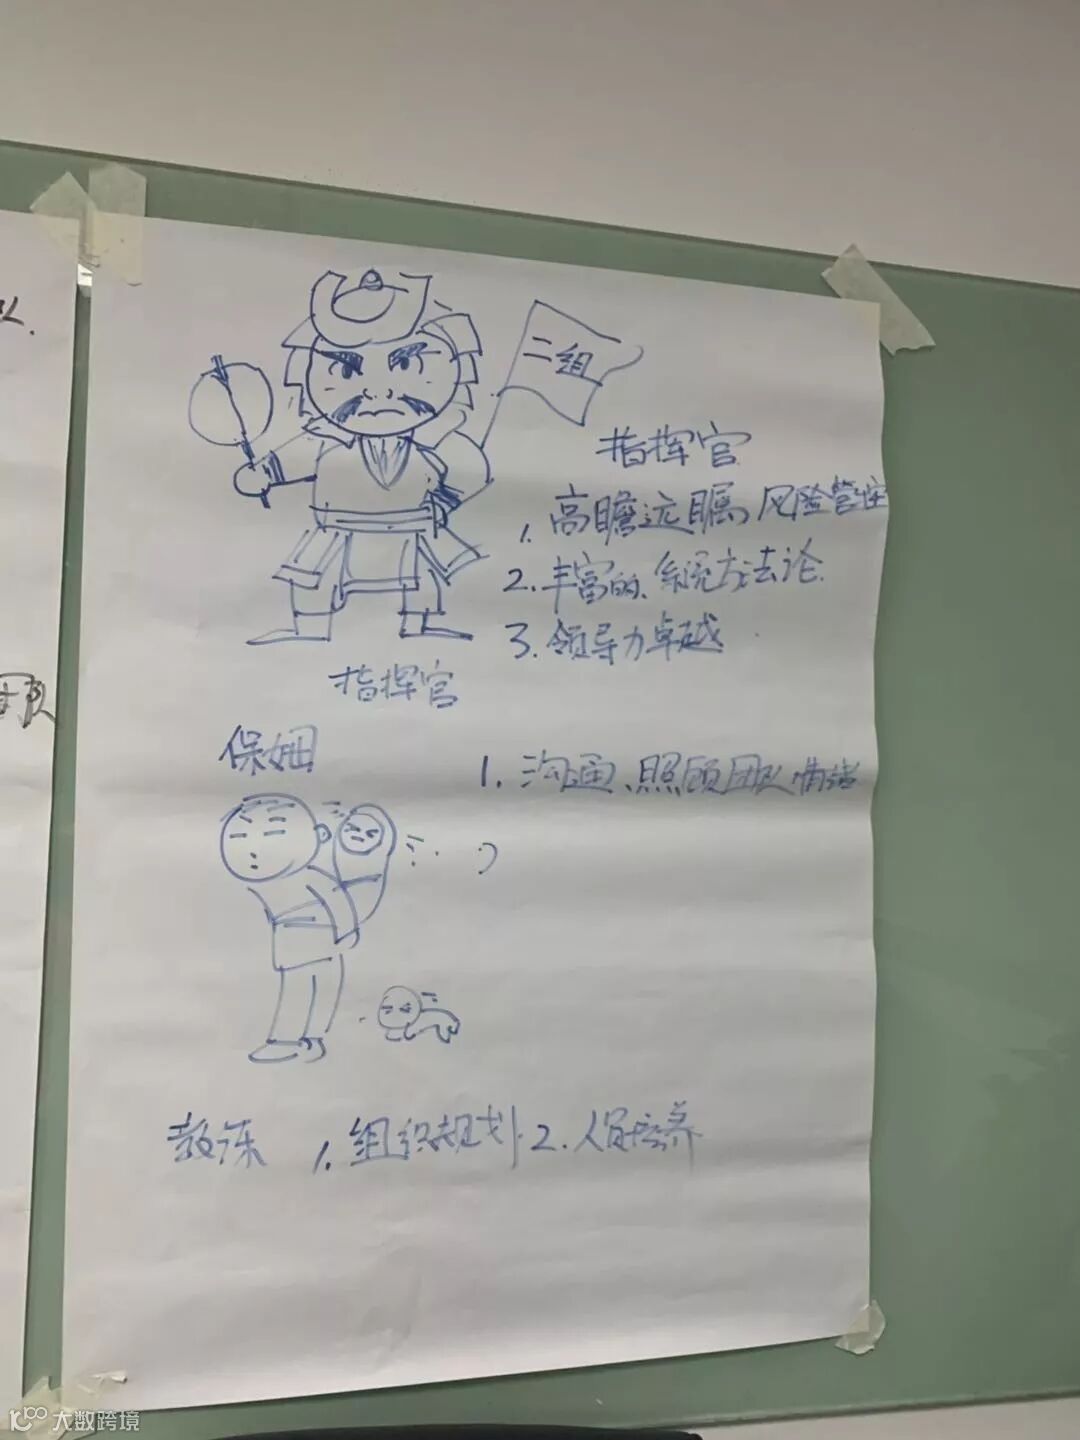 队.
团队
二组
指挥官
1. 高瞻远瞩, 风险管控
2. 丰富的、系统方法论.
3. 领导力卓越.
指挥官
保姆
1. 沟通、照顾团队情绪
教练 1. 组织规划 2. 人员培养
大数跨境